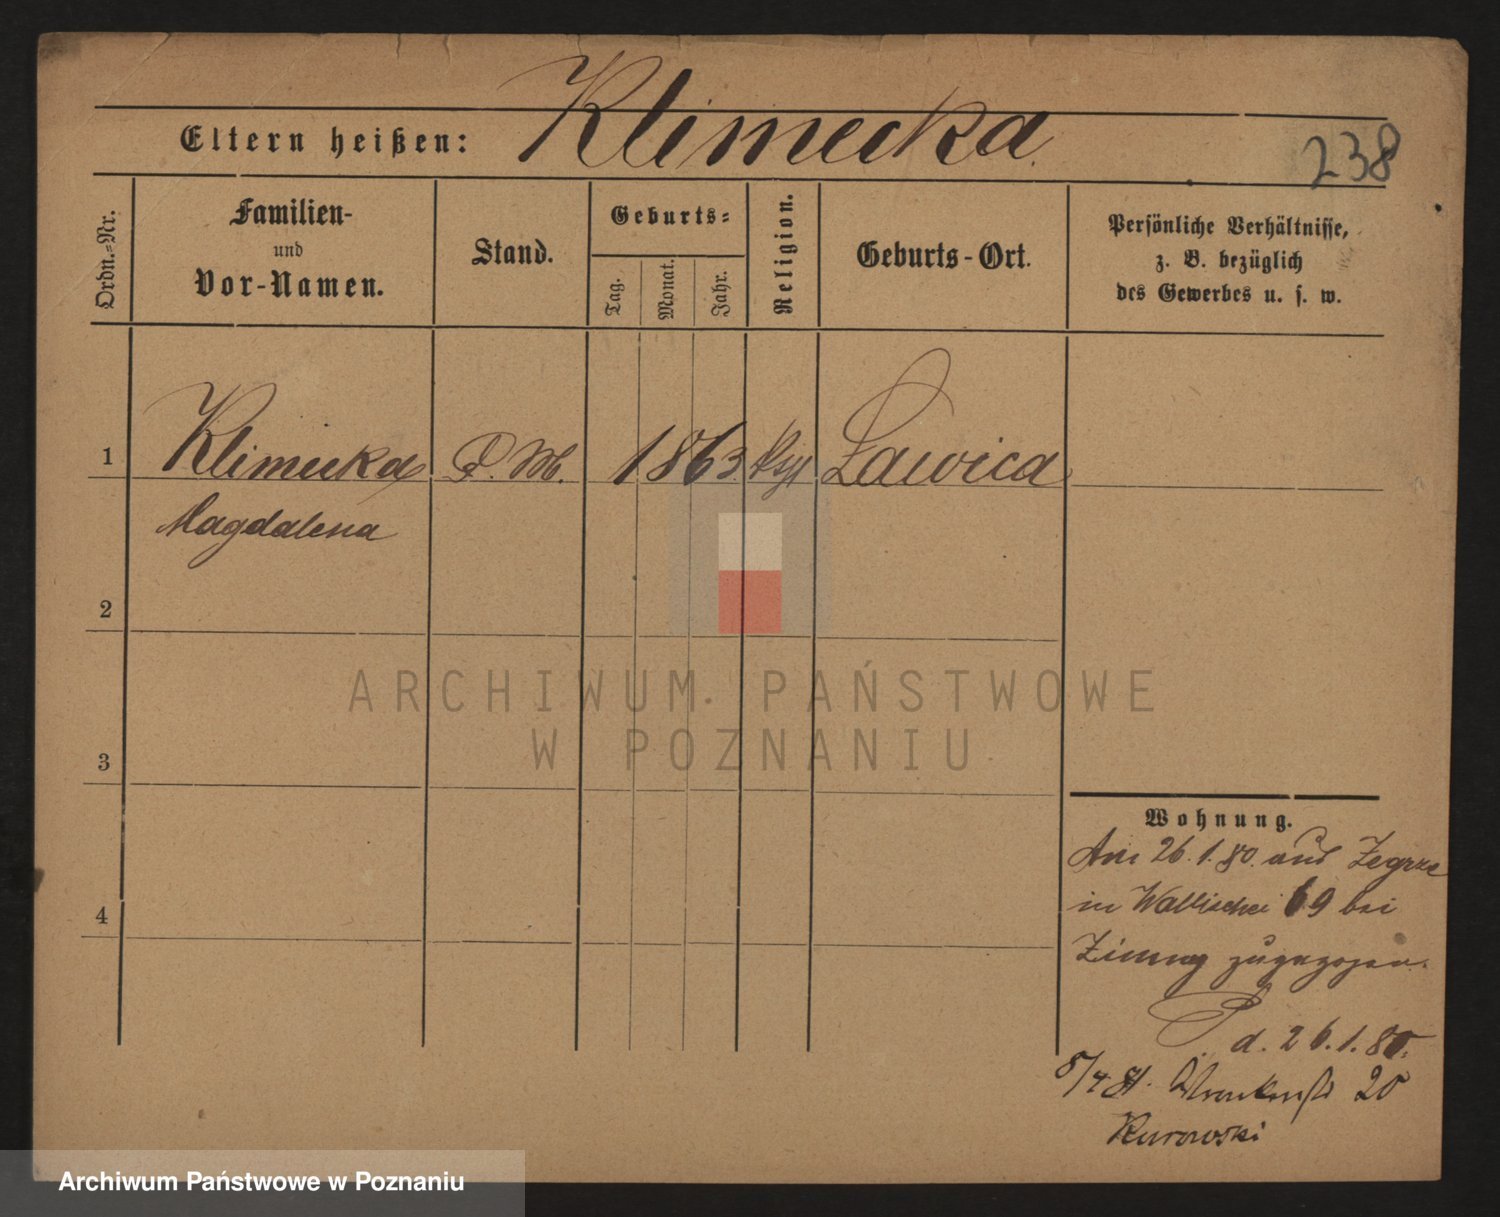 Eltern heißen: Klimecka
238
Ordn.-Nr.
Familien-
und
Vor-Namen.
Stand.
Geburts-
Tag.
Monat.
Jahr.
Religion.
Geburts-Ort.
Persönliche Verhältnisse,
z. B. bezüglich
des Gewerbes u. s. w.
1 Klimecka D. M. 1863 Ławica
Magdalena
2
3
4
ARCHIWUM PAŃSTWOWE
W POZNANIU
Wohnung.
Am 26.1.80. aus Zegrze
in Wallischei 69 bei
zugezogen.
P. d. 26.1.80.
5/4 81. 20
Kurowski
Archiwum Państwowe w Poznaniu